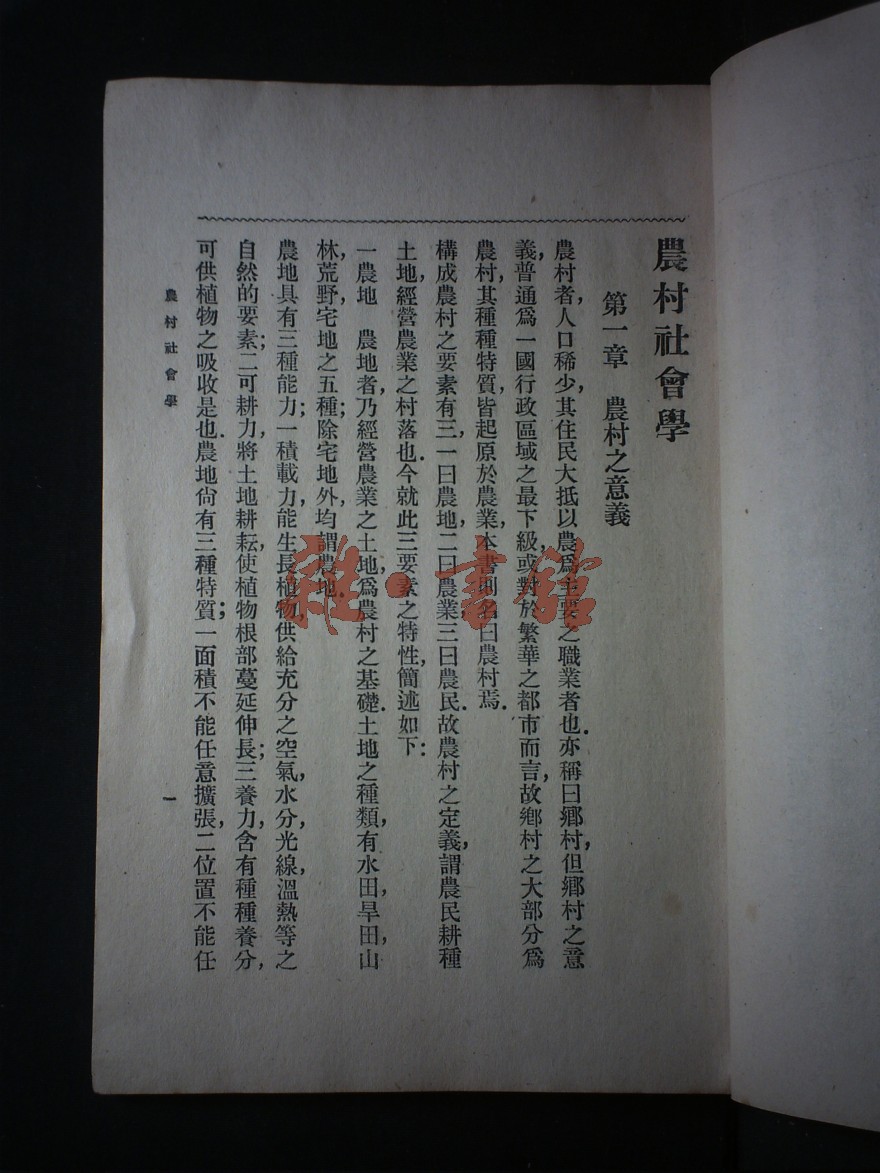 農村社會學
第一章　農村之意義
農村者，人口稀少，其住民大抵以農爲主要之職業者也．亦稱曰鄉村，但鄉村之意
義，普通爲一國行政區域之最下級，或對於繁華之都市而言，故鄉村之大部分爲
農村，其種種特質，皆起原於農業，本書則名曰農村焉．
構成農村之要素有三，一曰農地，二曰農業，三曰農民，故農村之定義，謂農民耕種
土地，經營農業之村落也．今就此三要素之特性，簡述如下：
一農地　農地者，乃經營農業之土地，爲農村之基礎．土地之種類，有水田，旱田，山
林，荒野，宅地之五種；除宅地外，均謂農地．
農地具有三種能力；一積載力，能生長植物，供給充分之空氣，水分，光線，溫熱等之
自然的要素；二可耕力，將土地耕耘，使植物根部蔓延伸長；三養力，含有種種養分，
可供植物之吸收是也．農地尙有三種特質；一面積不能任意擴張，二位置不能任
農村社會學
一
雜·書館